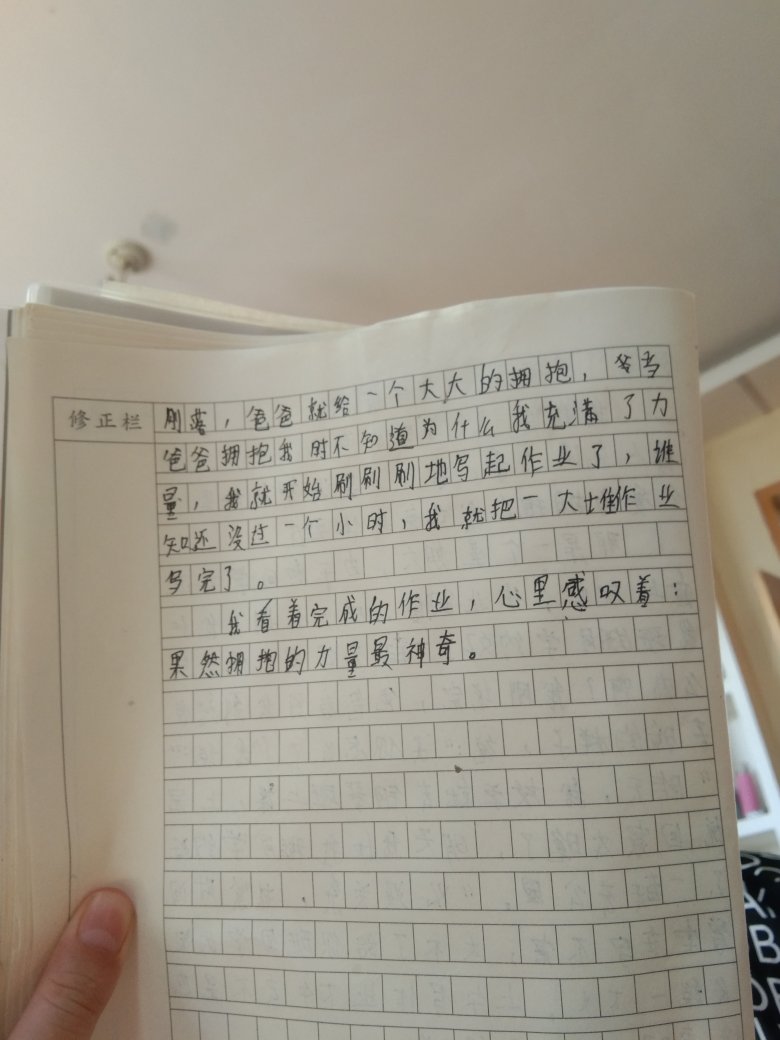 修正栏
刚落，爸爸就给一个大大的拥抱，爷当
爸爸拥抱我时不知道为什么我充满了力
量，我就开始刷刷刷地写起作业了，谁
知还没过一个小时，我就把一大堆作业
写完了。
我看着完成的作业，心里感叹着：
果然拥抱的力量最神奇。